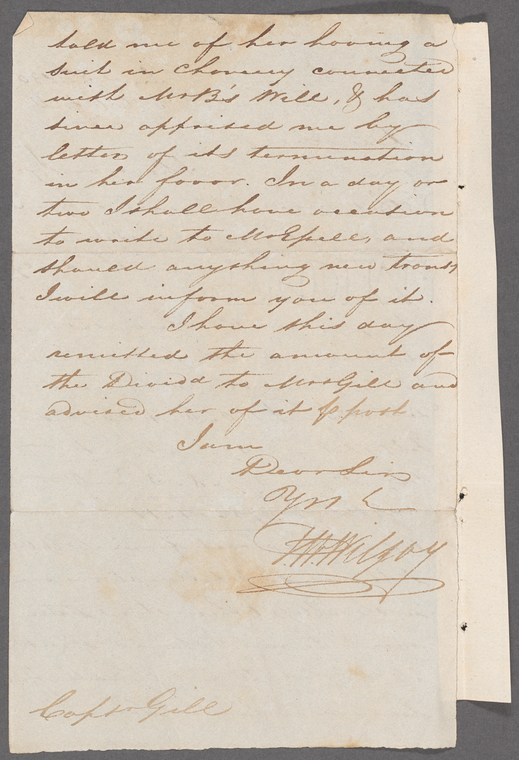 told me of her having a
suit in Chancery connected
with Mr B's Will, & has
since apprised me by
letter of its termination
in her favor. In a day or
two I shall have occasion
to write to Mr and
should anything new transp
I will inform you of it.
I have this day
remitted the amount of
the Divid d to Mrs Gill and
advised her of it p post.
I am
Dear Sir
Yrs
Capt Gill